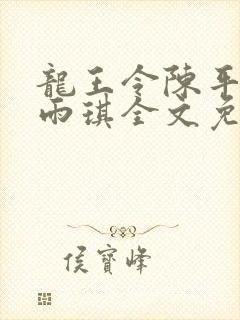 龍王令陳平
雨琪全文免
侯寶峰